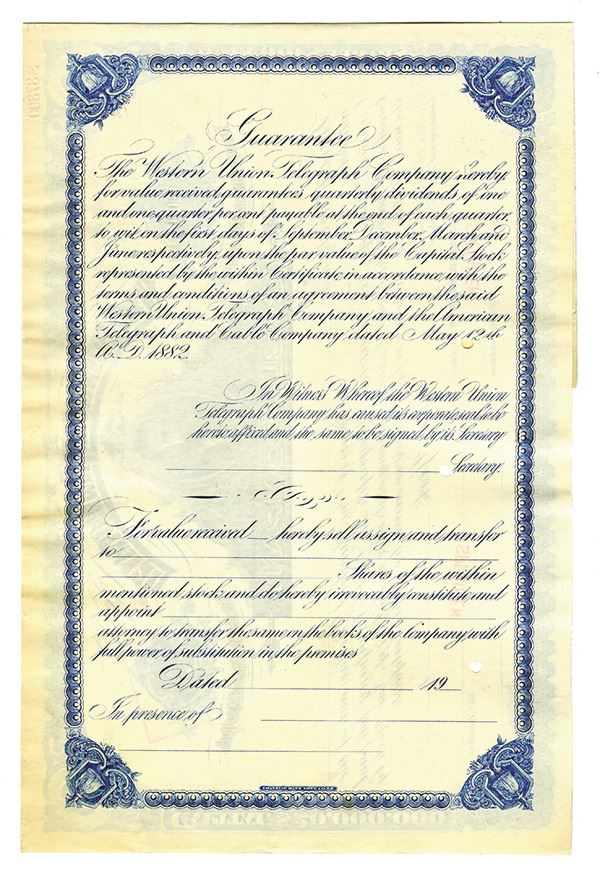 Guarantee
The Western Union Telegraph Company hereby,
for value received, guarantees quarterly dividends of one
and one quarter per cent payable at the end of each quarter,
to wit, on the first days of September, December, March and
June respectively, upon the par value of the Capital Stock
represented by the within Certificate, in accordance with the
terms and conditions of an agreement between the said
Western Union Telegraph Company and the American
Telegraph and Cable Company dated May 12th
A.D. 1882.
In Witness Whereof the Western Union
Telegraph Company has caused its corporate seal to be
hereto affixed and the same to be signed by its Secretary
Secretary.
For value received hereby sell, assign and transfer
to
Shares of the within
mentioned stock and do hereby irrevocably constitute and
appoint
attorney to transfer the same on the books of the Company with
full power of substitution in the premises
Dated 19
In presence of
FRANKLIN BANK NOTE CO. N.Y.